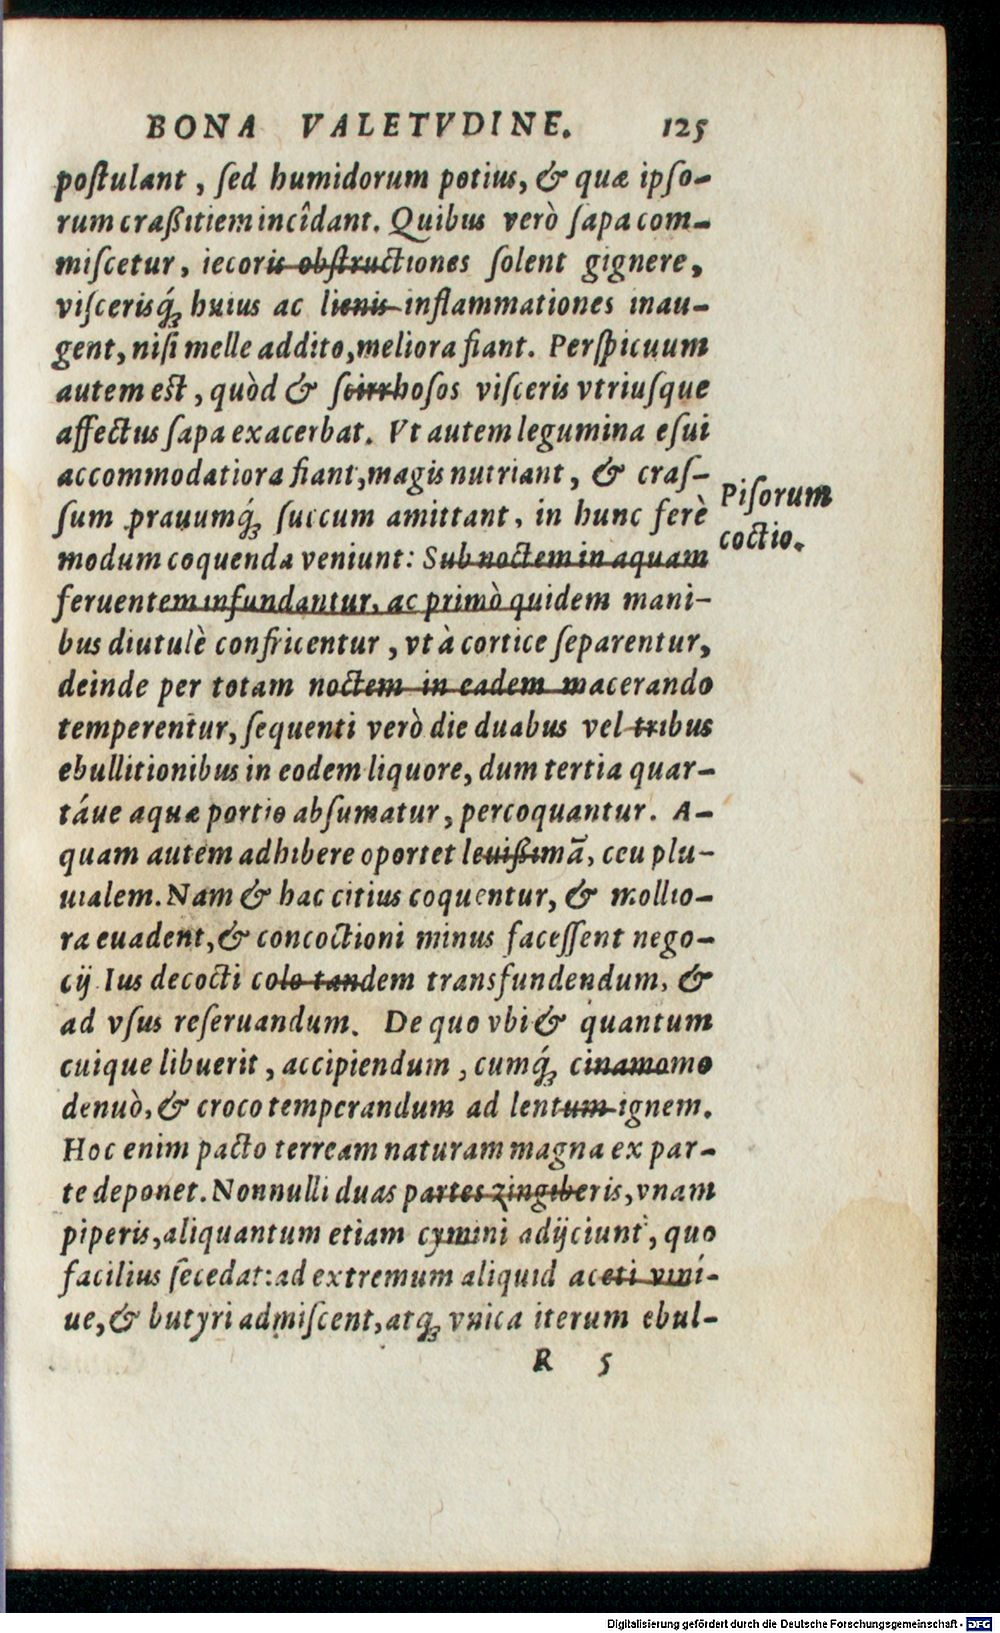 BONA VALETVDINE. 125
poſtulant, ſed humidorum potius, & quæ ipſo-
rum craßitiem incîdant. Quibus verò ſapa com-
miſcetur, iecoris obſtructiones ſolent gignere,
viſcerisq́ꝫ huius ac lienis inflammationes inau-
gent, niſi melle addito, meliora fiant. Perſpicuum
autem est, quòd & ſcirrhoſos viſceris vtriuſque
affectus ſapa exacerbat. Vt autem legumina eſui
accommodatiora fiant, magis nutriant, & craſ-
ſum prauumq́ꝫ ſuccum amittant, in hunc ferè
modum coquenda veniunt: Sub noctem in aquam
feruentem infundantur, ac primò quidem mani-
bus diutulè confricentur, vt à cortice ſeparentur,
deinde per totam noctem in eadem macerando
temperentur, ſequenti verò die duabus vel tribus
ebullitionibus in eodem liquore, dum tertia quar-
táue aquæ portio abſumatur, percoquantur. A-
quam autem adhibere oportet leuißimā, ceu plu-
uialem. Nam & hac citius coquentur, & mollio-
ra euadent, & concoctioni minus faceſſent nego-
cij. Ius decocti colo tandem transfundendum, &
ad vſus reſeruandum. De quo vbi & quantum
cuique libuerit, accipiendum, cumq́ꝫ cinamomo
denuò, & croco temperandum ad lentum ignem.
Hoc enim pacto terream naturam magna ex par-
te deponet. Nonnulli duas partes zingiberis, vnam
piperis, aliquantum etiam cymini adijciunt, quo
facilius ſecedat: ad extremum aliquid aceti viní-
ue, & butyri admiſcent, atqꝫ vnica iterum ebul-
R 5
Piſorum
coctio.
Digitalisierung gefördert durch die Deutsche Forschungsgemeinschaft - DFG